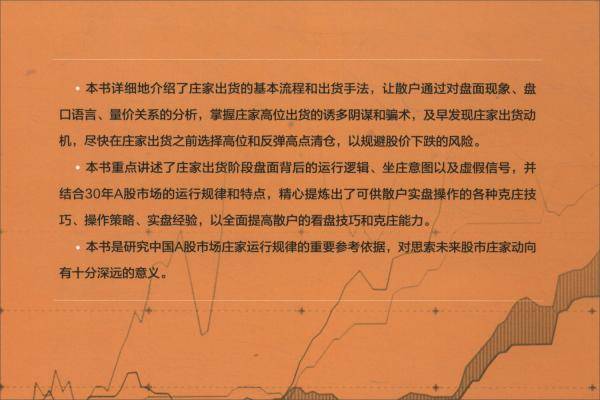 • 本书详细地介绍了庄家出货的基本流程和出货手法，让散户通过对盘面现象、盘
口语言、量价关系的分析，掌握庄家高位出货的诱多阴谋和骗术，及早发现庄家出货动
机，尽快在庄家出货之前选择高位和反弹高点清仓，以规避股价下跌的风险。
• 本书重点讲述了庄家出货阶段盘面背后的运行逻辑、坐庄意图以及虚假信号，并
结合30年A股市场的运行规律和特点，精心提炼出了可供散户实盘操作的各种克庄技
巧、操作策略、实盘经验，以全面提高散户的看盘技巧和克庄能力。
• 本书是研究中国A股市场庄家运行规律的重要参考依据，对思索未来股市庄家动向
有十分深远的意义。